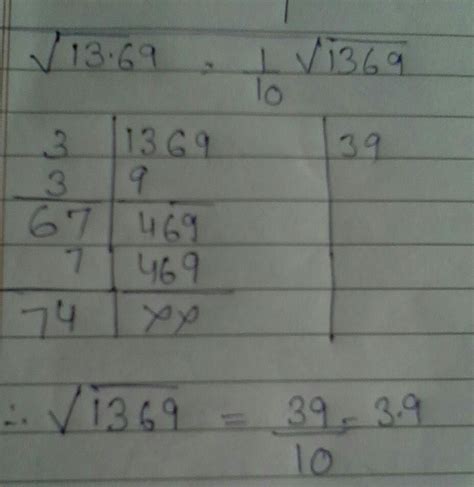 √13.69 = 1/10 √1369
3 | 1369 | 39
3 | 9
67 | 469
7 | 469
74 | xx
∴ √1369 = 39/10 = 3.9